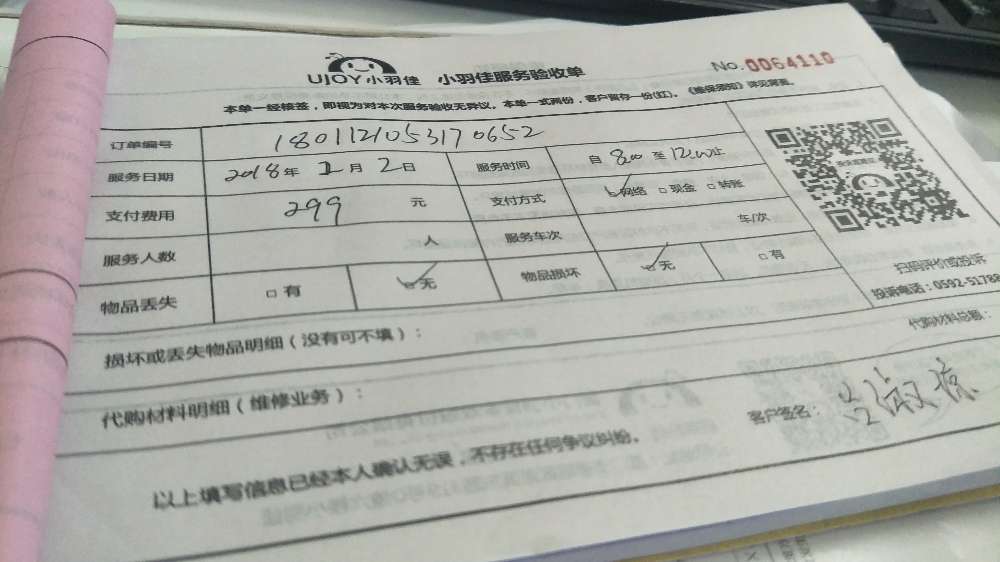 UJOY小羽佳 小羽佳服务验收单 No.0064110
本单一经核签，即视为对本次服务验收无异议。本单一式两份，客户暂存一份(红)。《维保须知》详见背面。
订单编号 1801121053170652
服务日期 2018年 1月 2日 服务时间 自 8:00 至 12:00止
支付费用 299 元 支付方式 ☑网络 □现金 □转账
服务人数 人 服务车次 车/次
物品丢失 □有 ☑无 物品损坏 ☑无 □有
扫码评价或投诉
投诉电话：0592-5178
损坏或丢失物品明细（没有可不填）：
代购材料总额：
代购材料明细（维修业务）：
客户签名：
以上填写信息已经本人确认无误，不存在任何争议纠纷。